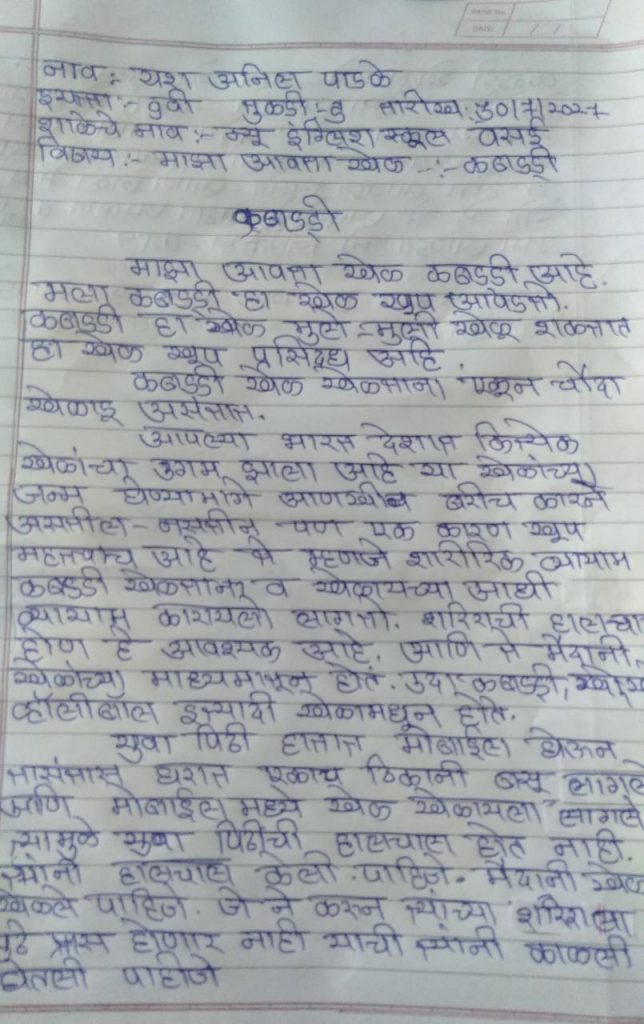 नाव :- यश अनिल पाडके
इयत्ता :- ७वी तुकडी :- ब तारीख :
शाळेचे नाव :- न्यू इंग्लिश स्कूल वसई
विषय :- माझा आवता खेळ -:- कबड्डी
कबड्डी
माझा आवता खेळ कबड्डी आहे.
मला कबड्डी हा खेळ खुप आवडतो.
कबड्डी हा खेळ मुले-मुली खेळू शकतात
हा खेळ खूप प्रसिद्ध आहे
कबड्डी खेळ खेळताना एकून चौदा
खेळाडू असतात.
आपल्या भारत देशात कित्येक
खेळांचा उगम झाला आहे या खेळांच्या
जन्म घेण्यामागे आणखीन बरीच कारने
असतील - नसतील पण एक कारण खूप
महत्त्वाच आहे ते म्हणजे शारीरिक व्यायाम
कबड्डी खेळताना व खेळायच्या आधी
व्यायाम कारायला लागतो. शरिराची हालचा
होण हे आवश्यक आहे. आणि ते मैदानी
खेळांच्या माध्यमातून होत. उदा. कबड्डी,
व्हॉलीबॉल इत्यादी खेळामधून होते.
युवा पिढी हातात मोबाईल घेऊन
तासंतास घरात एकाच ठिकानी बसू लागले
आणि मोबाईल मध्ये खेळ खेळायला लागले
त्यामुळे युवा पिढीची हालचाल होत नाही.
त्यांनी हालचाल केली पाहिजे. मैदानी खेळ
खेळले पाहिजे. जे ने करून त्यांच्या शरिराला
पुढे त्रास होणार नाही याची त्यांनी काळली
घेतली पाहीजे